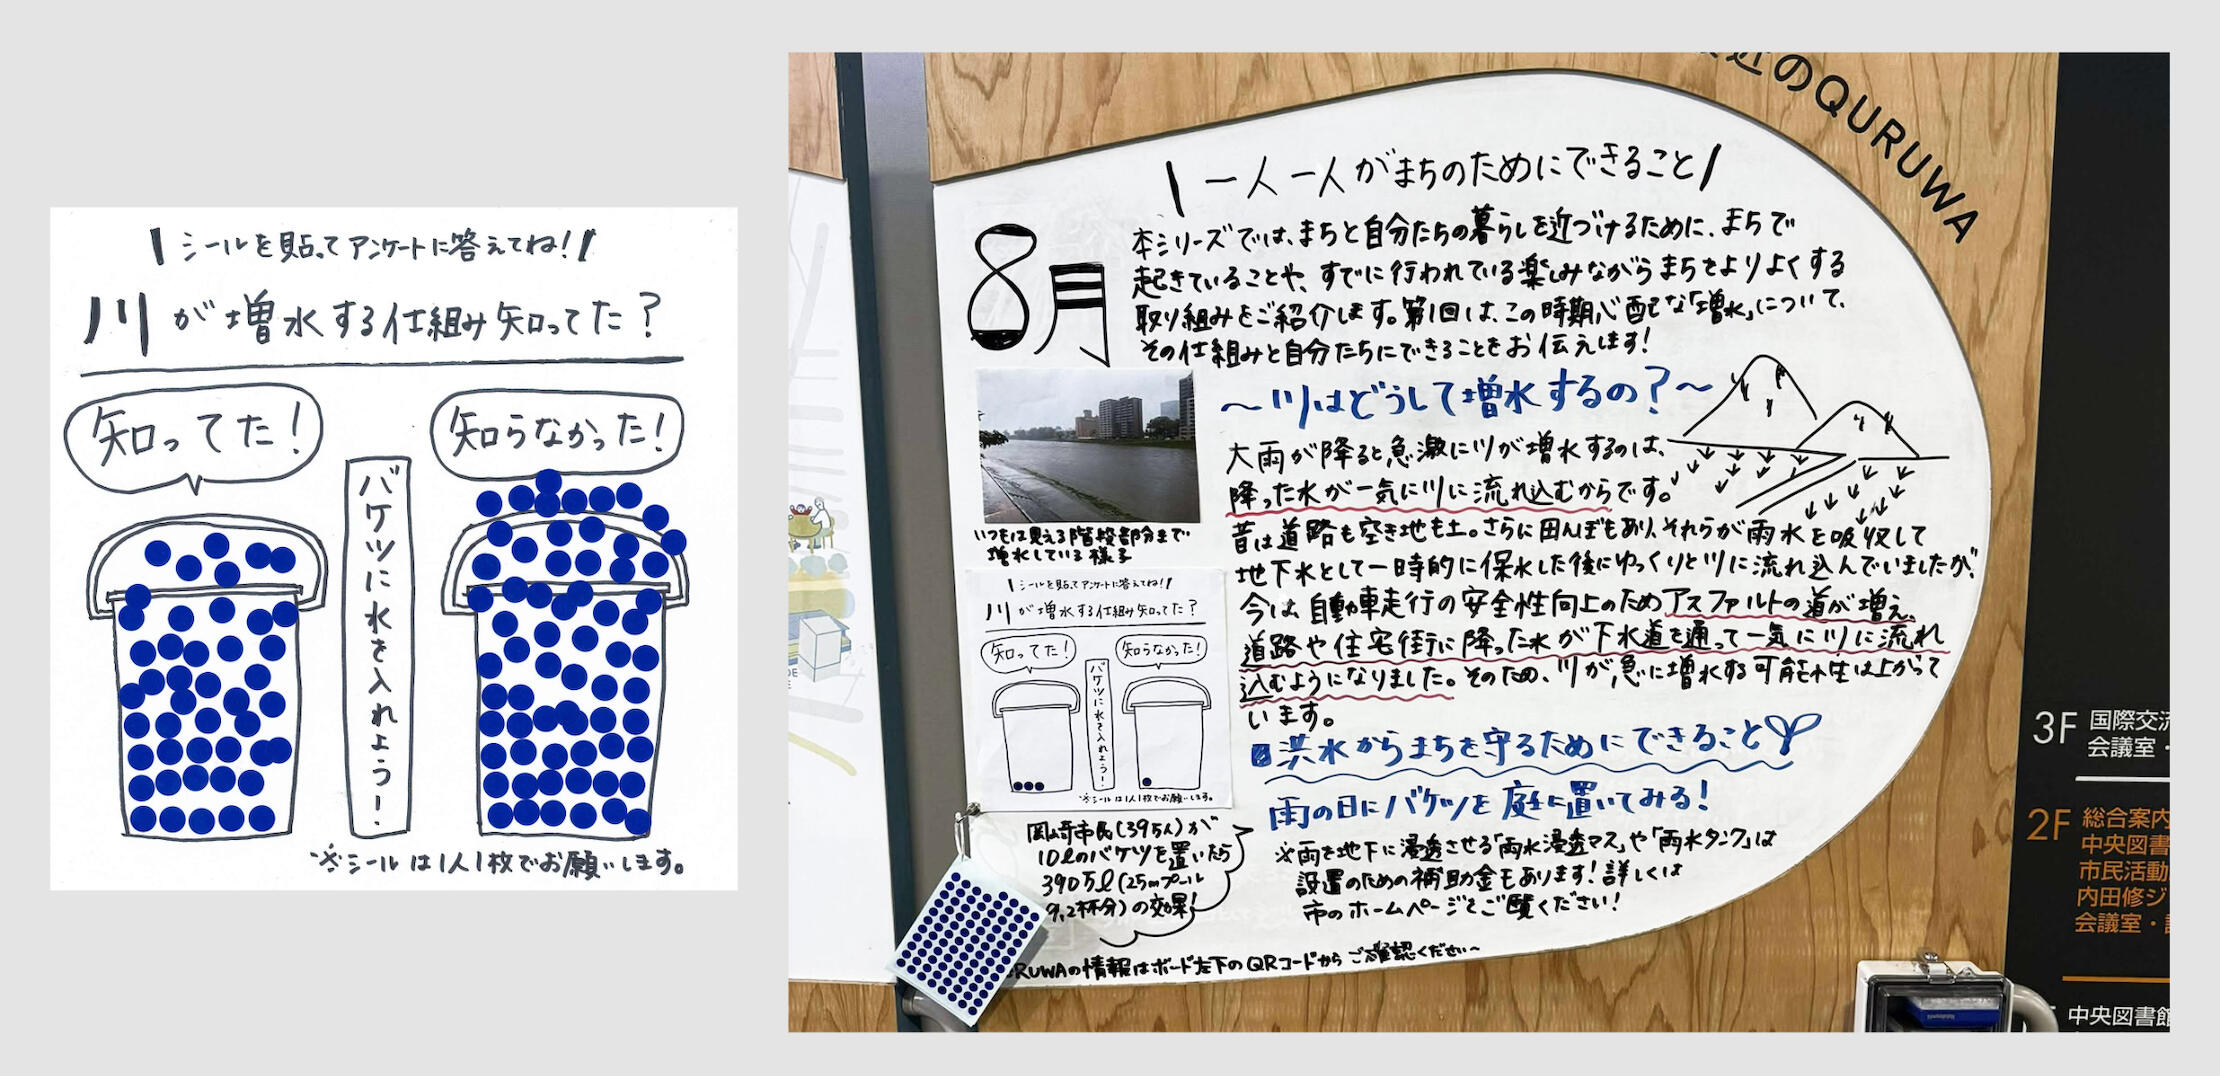 \シールを貼ってアンケートに答えてね!/
川が増水する仕組み知ってた?
知ってた!
知らなかった!
バケツに水を入れよう!
※シールは1人1枚でお願いします。
近のQURUWA
\一人一人がまちのためにできること/
8月
本シリーズでは、まちと自分たちの暮らしを近づけるために、まちで
起きていることや、すでに行われている楽しみながらまちをよりよくする
取り組みをご紹介します。第1回は、この時期心配な「増水」について、
その仕組みと自分たちにできることをお伝えします!
〜川はどうして増水するの?〜
大雨が降ると急激に川が増水するのは、
降った水が一気に川に流れ込むからです。
昔は道路も空き地も土。さらに田んぼもあり、それらが雨水を吸収して
地下水として一時的に保水した後にゆっくりと川に流れ込んでいましたが、
今は自動車走行の安全性向上のためアスファルトの道が増え、
道路や住宅街に降った水が下水道を通って一気に川に流れ
込むようになりました。そのため、川が急に増水する可能性は上がって
います。
いつもは見える階段部分まで
増水している様子
\シールを貼ってアンケートに答えてね!/
川が増水する仕組み知ってた?
知ってた!
知らなかった!
バケツに水を入れよう!
※シールは1人1枚でお願いします。
洪水からまちを守るためにできること
雨の日にバケツを庭に置いてみる!
※雨を地下に浸透させる「雨水浸透マス」や「雨水タンク」は
設置のための補助金もあります!詳しくは
市のホームページをご覧ください!
岡崎市民(39万人)が
10ℓのバケツを置いたら
390万ℓ(25mプール
9.2杯分)の効果!
RUWAの情報はボード左下のQRコードからご確認ください〜
3F 国際交流
会議室・
2F 総合案内
中央図書
市民活動
内田修ジ
会議室・
中央図書館